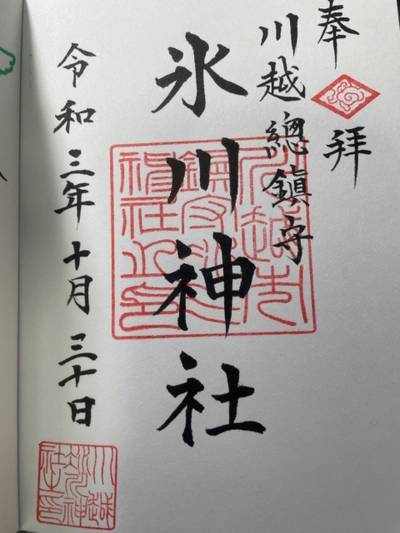 奉拝
川越總鎮守
氷川神社
令和三年十月三十日